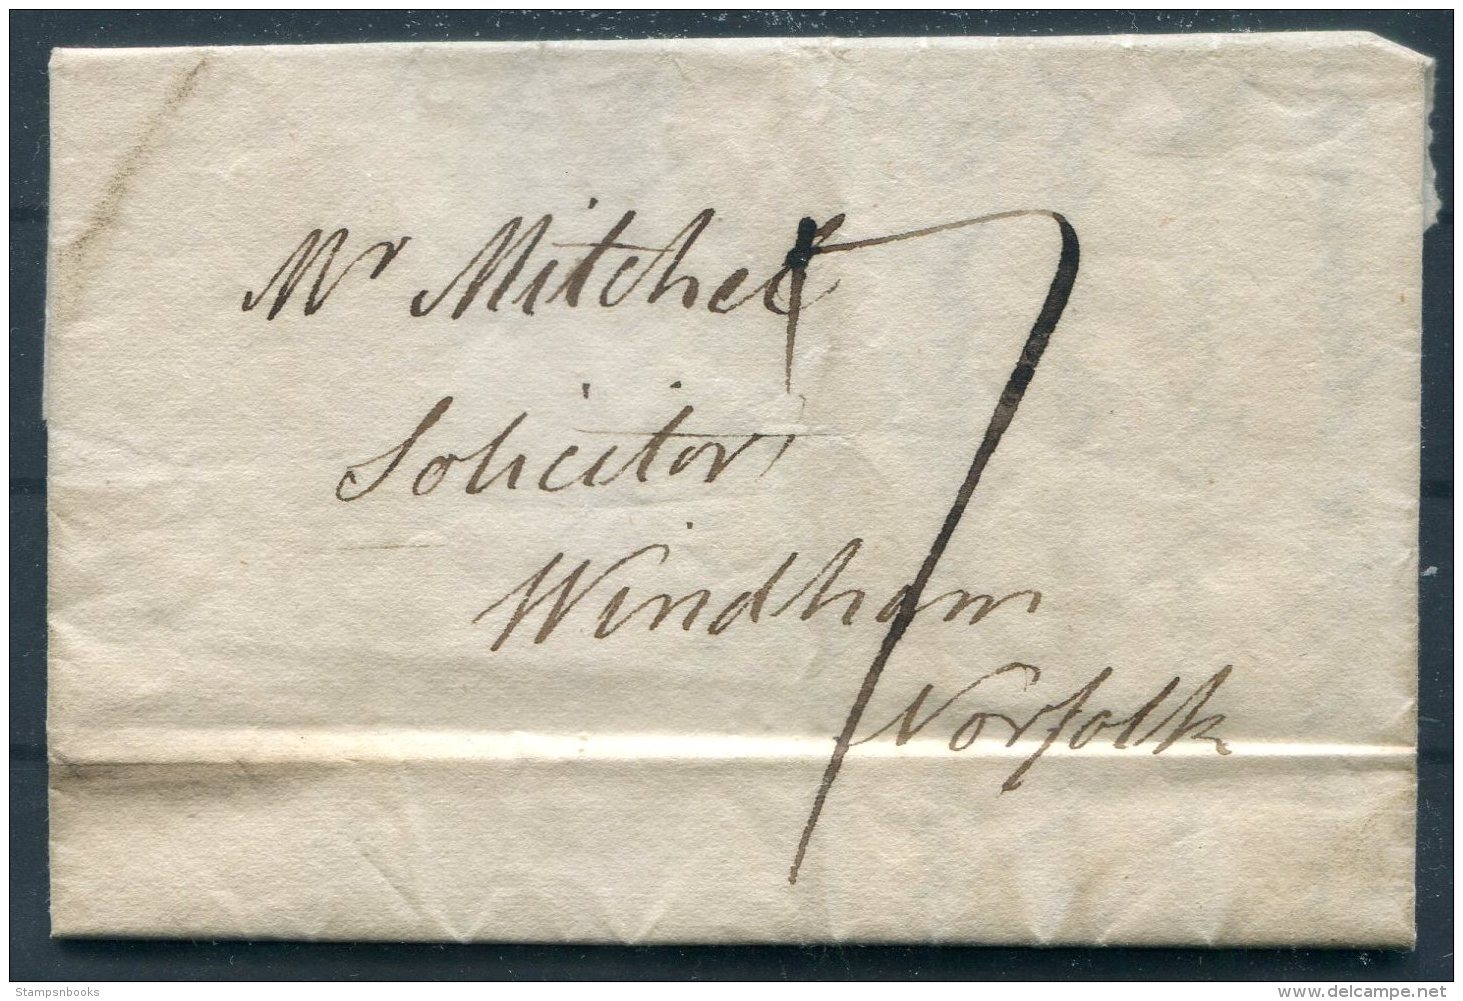 Mr Mitchel
7
Solicitor
Windham
Norfolk
Stampsnbooks
www.delcampe.net